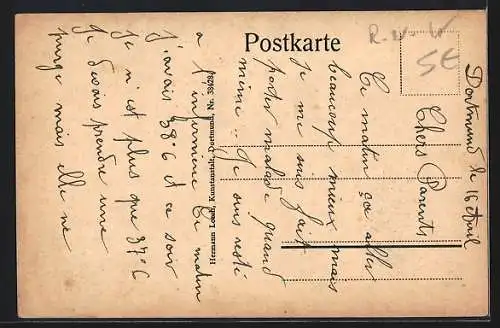 Postkarte
R-W-W
5€
Dortmund le 16 Avril
Chers Parents
Ce matin ça aller
beaucoup mieux mais
je me suis fait
porter malade quand
même. Je suis resté
a l'infirmerie Ce matin
j'avais 38°6 et ce soir
je n'est plus que 37°6
Je devais prendre une
purge mais elle ne
Hermann Lorch, Kunstanstalt, Dortmund, Nr.